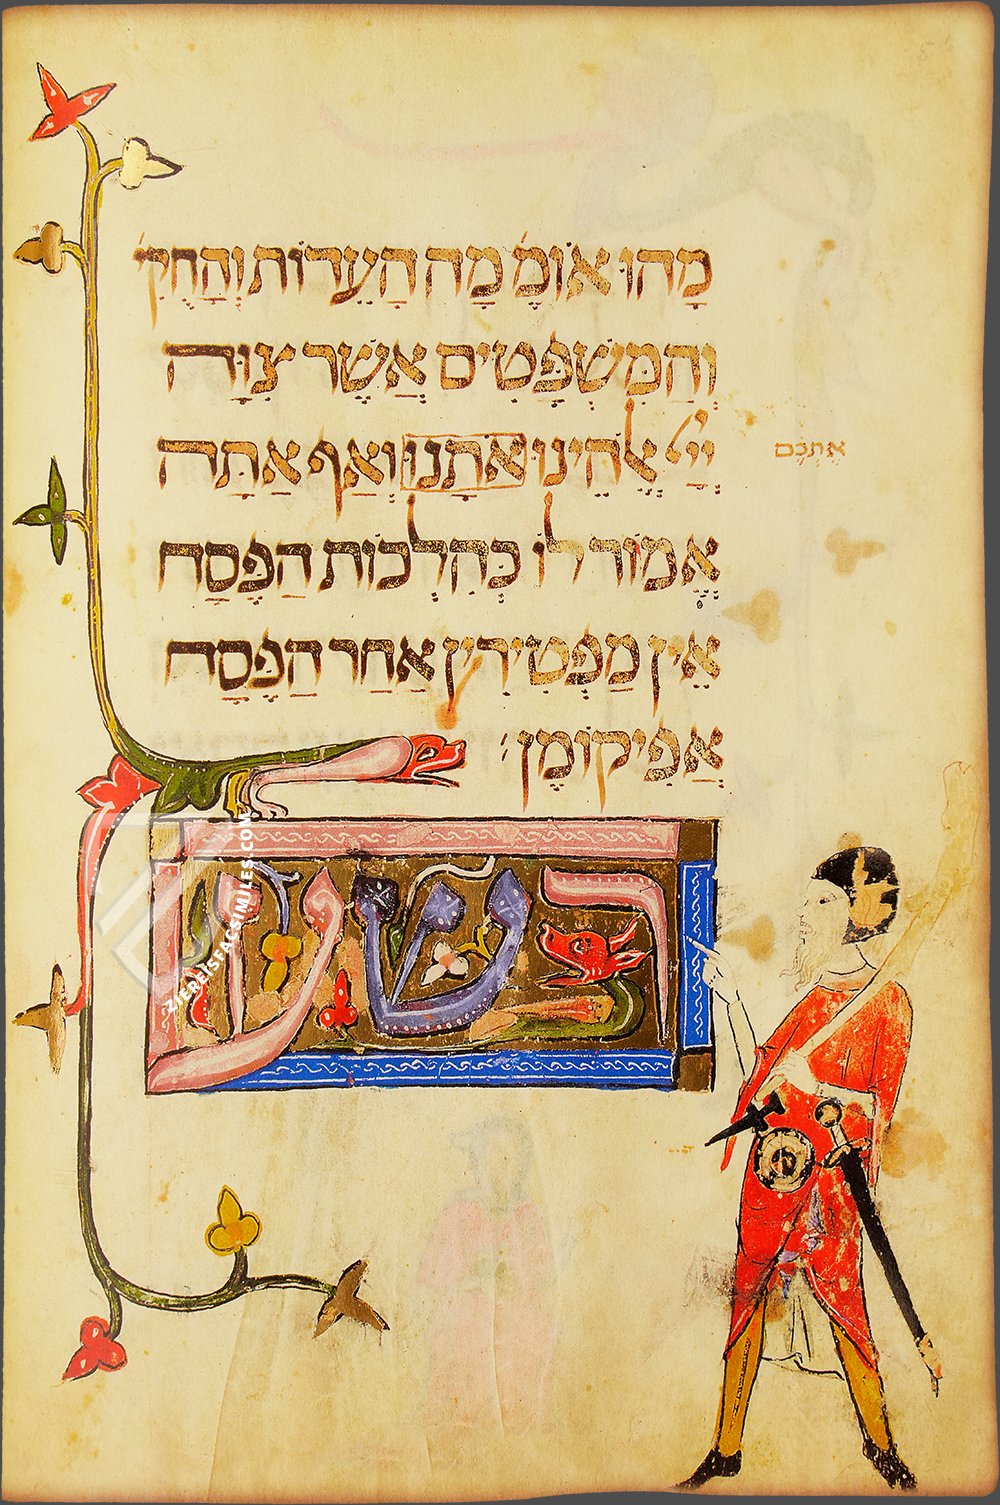 מָהוּ אוֹמֵ' מָה הָעֵדוֹת וְהַחֻקִּי'
וְהַמִּשְׁפָּטִים אֲשֶׁר צִוָּה
יְיָ אֱלֹהֵינוּ אֹתָנוּ וְאַף אַתָּה
אֶתְכֶם
אֱמוֹר לוֹ כְּהִלְכוֹת הַפֶּסַח
אֵין מַפְטִירִין אַחַר הַפֶּסַח
אֲפִיקוֹמֶן:
רשע
ZIERLISFACSIMILES.COM